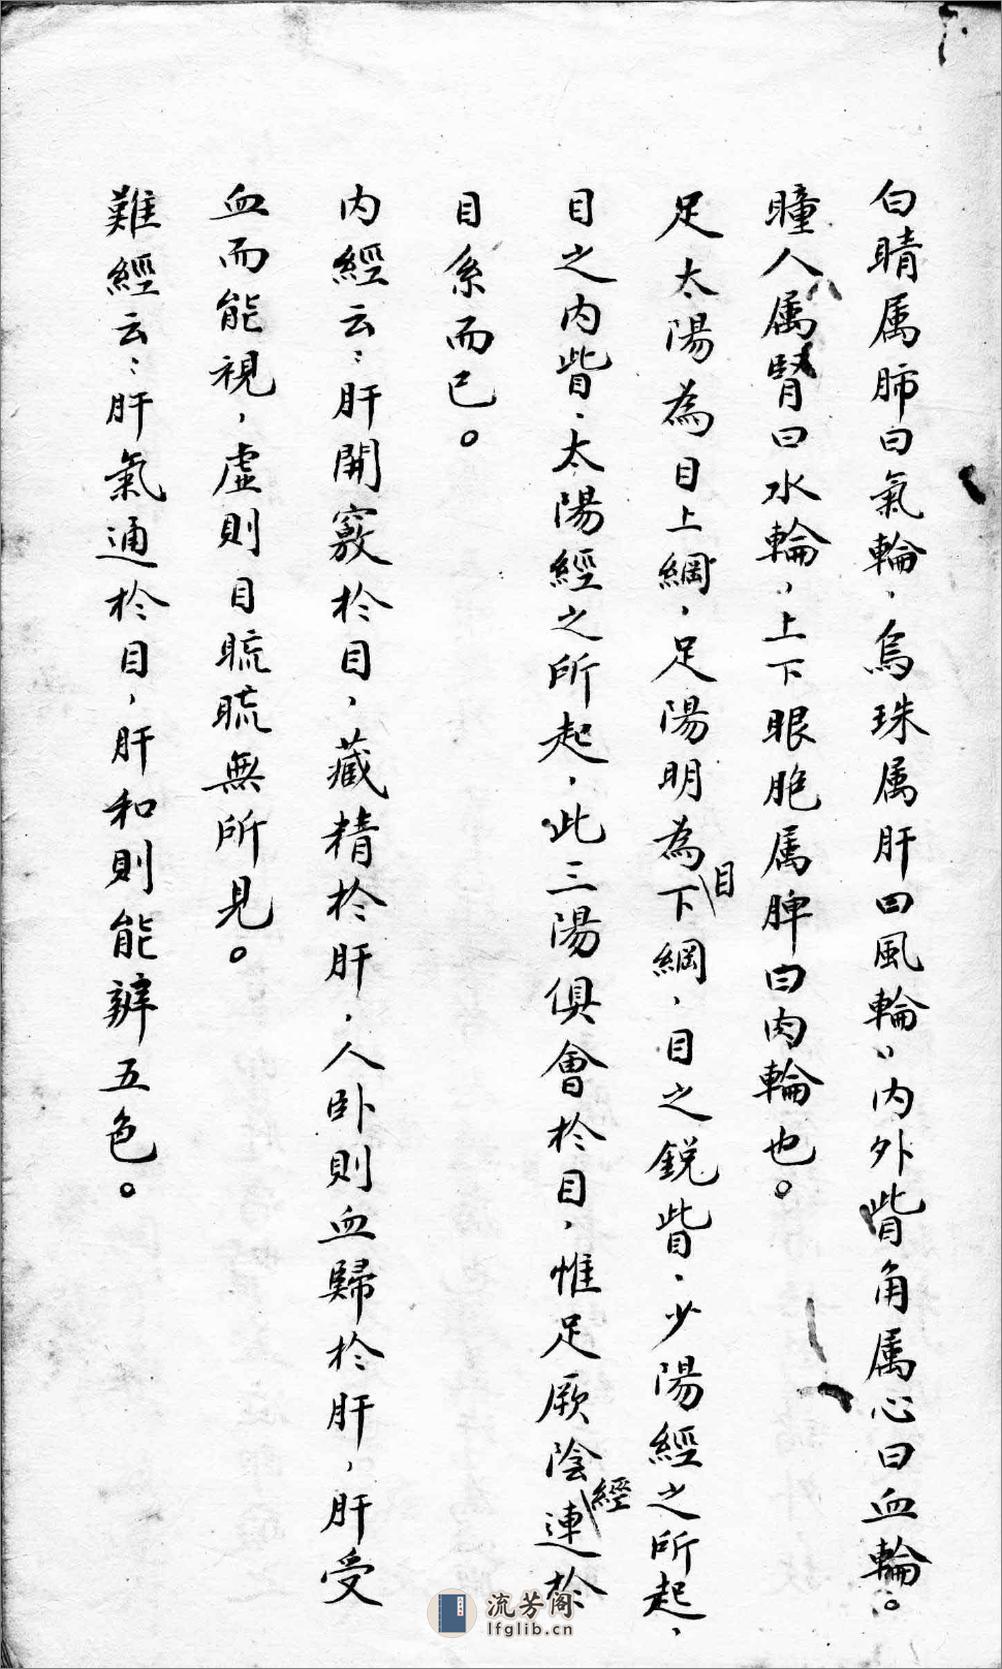 白睛属肺曰氣輪，烏珠属肝曰風輪，内外眥角属心曰血輪。
瞳人属腎曰水輪，上下眼胞属脾曰肉輪也。
足太陽為目上綱，足陽明為目下綱，目之銳眥，少陽經之所起，
目之内眥，太陽經之所起，此三陽俱會於目，惟足厥陰經連於
目系而已。
内經云：肝開竅於目，藏精於肝，人卧則血歸於肝，肝受
血而能視，虛則目䀮䀮無所見。
難經云：肝氣通於目，肝和則能辨五色。
流芳阁
lfglib.cn